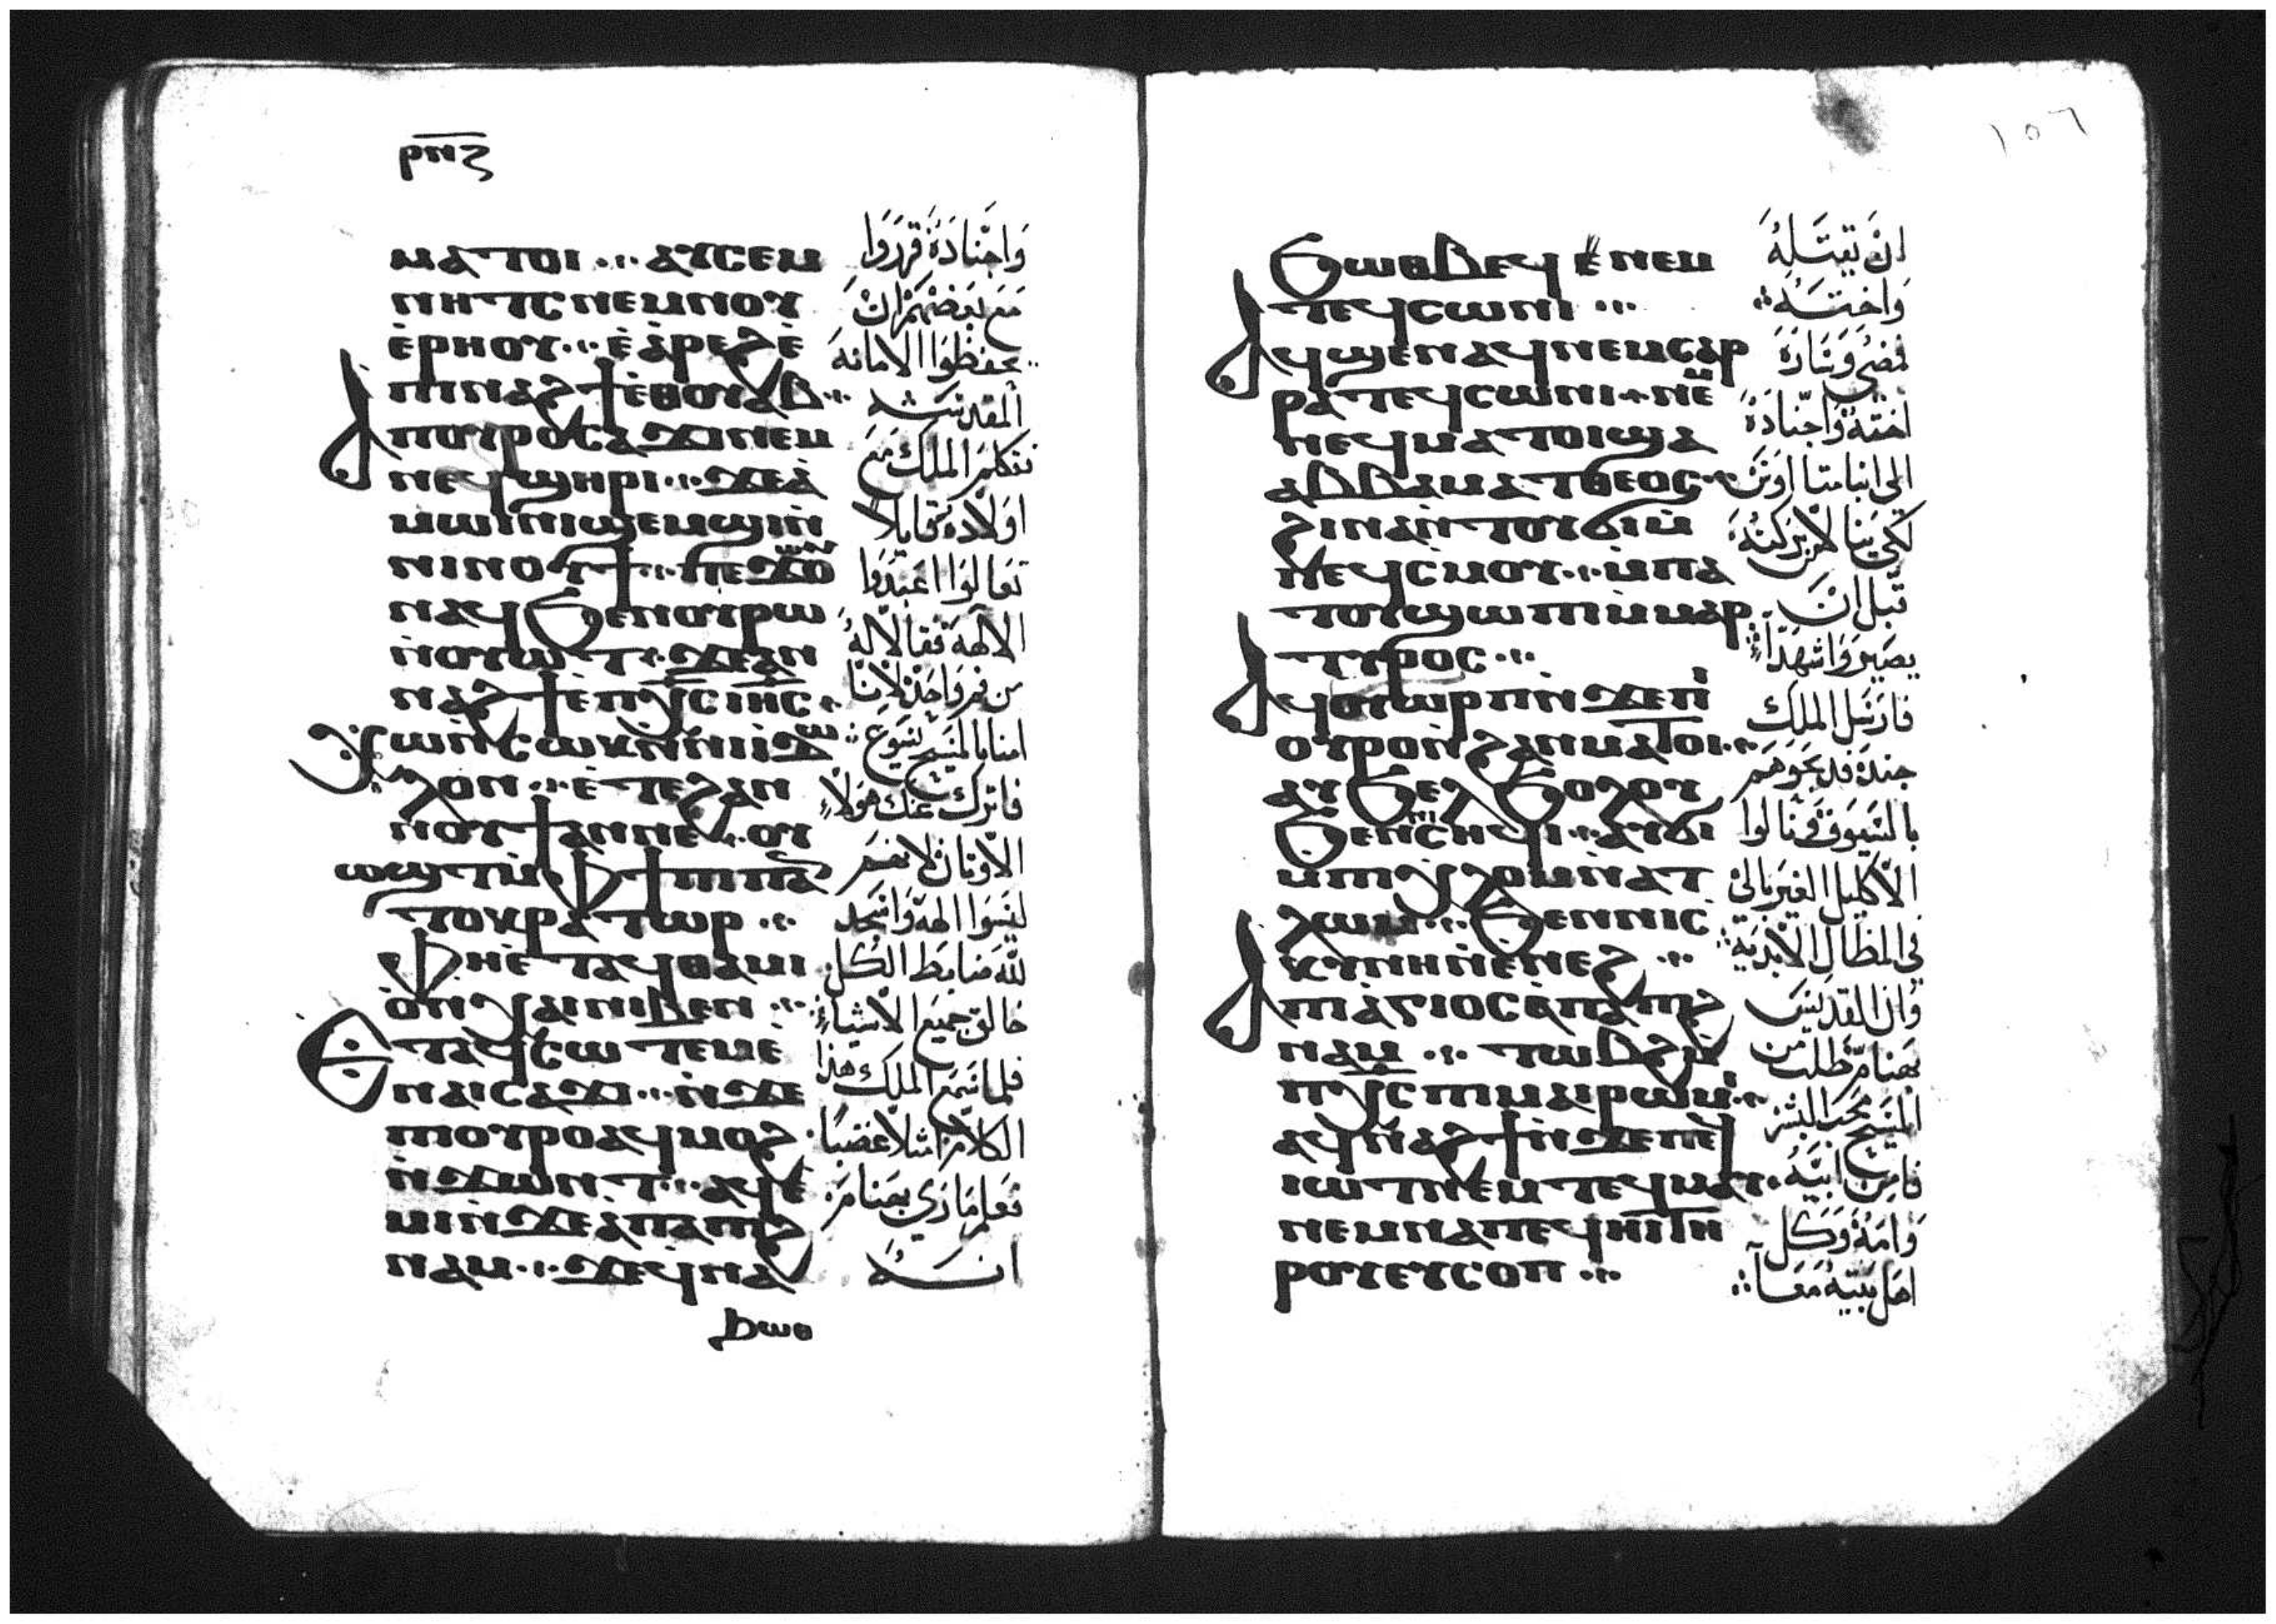 ⲣⲛⲍ
ⲙⲁⲧⲟⲓ ⲁⲩⲥⲉⲙ
ⲛⲏⲧⲥ ⲛⲉⲙⲛⲟⲩ
ⲉⲣⲏⲟⲩ ⲉⲁⲣⲉϩⲉ
ⲡⲓⲛⲁϩϯⲉⲑⲟⲩⲁⲃ
Ⲁⲡⲟⲩⲣⲟⲥⲁϫⲓⲛⲉⲙ
ⲛⲉϥϣⲏⲣⲓ ϫⲉⲁ
ⲙⲱⲓⲛⲓϣⲉⲙϣⲓⲛ
ⲛⲓⲛⲟⲩϯ ⲡⲉϫⲱⲟⲩ
ⲛⲁϥϧⲉⲛⲟⲩⲣⲱ
ⲛⲟⲩⲱⲧ ϫⲉⲁⲛ
ⲛⲁϩϯⲉⲡⲭⲥ ⲓⲏⲥ
Ⲭⲱⲛⲥⲱⲕⲛⲛⲓⲓⲇ
ⲗⲟⲛ ⲉⲧⲉϩⲁⲛ
ⲛⲟⲩϯⲁⲛⲛⲉ ⲟⲩ
ⲱϣⲧⲙⲫϯⲡⲓⲡⲁ
ⲧⲟⲕⲣⲁⲧⲱⲣ
ⲫⲏⲉⲧⲁϥⲑⲁⲙⲓ
ⲟⲛⲭⲁⲓⲛⲓⲃⲉⲛ
Ⲉⲧⲁϥⲥⲱⲧⲉⲙⲉ
ⲛⲁⲓⲥⲁϫⲓ ⲛϫⲉ
ⲡⲓⲟⲩⲣⲟⲁϥⲙⲟϩ
ⲛϫⲱⲛⲧ ⲁϥⲉ
ⲙⲓⲛϫⲉⲁⲡⲁⲡϩ
ⲛⲁⲙ ϫⲉϥⲛⲁ
ϧⲱⲑ
وَاجنَادَهُ قررَوا
مَع بَعضهَم انْ
يحفظوا الامانه
المقدسَـه
فتكلم الملك مَع
اوَلادهُ قايلا
تعَالوَا اعَبدوَا
الالهَة فقالا لهُ
من فم وَاحد لاننا
امنا بالمسَيح يسَوع
فاترك عنك هَولاء
الاوثان لانهَم
ليسَوَا الهه وَاسجد
لله ضابط الكل
خالق جميَع الاشيَاء
فلما سَمع الملك هذا
الكلام امتلا غضبًا
فعَلم مَاري بهَنام
انـه
١٥٦
ϧⲱⲑⲃⲉϥ ⲉⲛⲉⲙ
ⲧⲉϥⲥⲱⲛⲓ
Ⲁϥϣⲉⲛⲁϥⲛⲉⲙⲥⲁⲣ
ⲣⲁⲧⲉϥⲥⲱⲛⲓ ⲛⲉⲙ
ⲛⲉϥⲙⲁⲧⲟⲓϣⲁ
ⲁⲃⲃⲁⲙⲁⲧⲑⲉⲟⲥ
ϩⲓⲛⲁⲛⲧⲟⲩϭⲓⲙ
ⲡⲉϥⲥⲙⲟⲩ ⲙⲡⲁ
ⲧⲟⲩϣⲱⲡⲓⲙⲙⲁⲣ
ⲧⲩⲣⲟⲥ
Ⲁϥⲟⲩⲱⲣⲡⲛϫⲉⲡⲓ
ⲟⲩⲣⲟⲛϩⲁⲛⲙⲁⲧⲟⲓ
ⲁⲩϧⲉⲗϧⲱⲗⲟⲩ
ϧⲉⲛⲧⲥⲏϥⲓ ⲁⲩϭⲓ
ⲙⲡⲓⲭⲗⲟⲙⲛⲁⲧ
ⲗⲱⲙ ϧⲉⲛⲛⲓⲥ
ⲕⲩⲛⲏⲛⲉⲛⲉϩ
Ⲁⲡⲓⲁⲅⲓⲟⲥⲁⲡⲁⲡϩ
ⲛⲁⲙ ⲧⲱⲃϩⲙ
ⲡⲭⲥ ⲡⲓⲙⲁⲓⲣⲱⲙⲓ
ⲁϥⲛⲁϩϯⲛϫⲉⲡⲉϥ
ⲓⲱⲧⲛⲉⲙ ⲧⲉϥⲙⲁⲩ
ⲛⲉⲙⲛⲁⲡⲉϥⲏⲓⲧⲏ
ⲣⲟⲩⲉⲩⲥⲟⲡ
انْ يقتَـلهُ
وَاختـهُ
فمضىَ وسَارَة
اختهَ وَاجنادَهُ
الي انبا متاا وَسَ
لكي يَنالوا بركتهُ
قبل انْ
يصَيروَا شهَدَاء
فارسَل الملك
جندَهُ فدبحَوهَم
بالسَيَوف فنالوا
الاكليل الغيَر بالي
في المظال الابديه
وَان القديَس
بهَنام طلبَ من
المسَيح محَب البشر
فامن ابيَهُ
وَامهُ وَكل
اهَل بيَتهُ مَعَـا